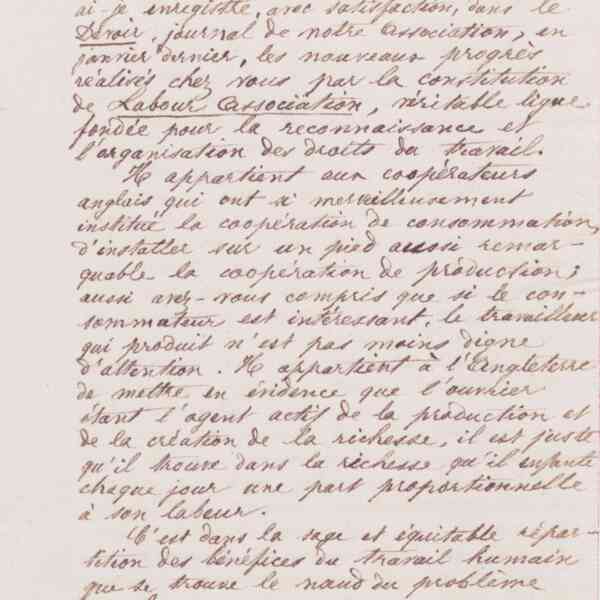 ai-je enregistré, avec satisfaction, dans le
Devoir, journal de notre association, en
janvier dernier, les nouveaux progrès
réalisés chez vous par la constitution
de Labour association, véritable ligue
fondée pour la reconnaissance et
l'organisation des droits du travail.
Il appartient aux coopérateurs
anglais qui ont si merveilleusement
institué la coopération de consommation,
d'installer sur un pied aussi remar-
quable la coopération de production;
aussi avez-vous compris que si le con-
sommateur est intéressant, le travailleur
qui produit n'est pas moins digne
d'attention. Il appartient à l'Angleterre
de mettre en évidence que l'ouvrier
étant l'agent actif de la production et
de la création de la richesse, il est juste
qu'il trouve dans la richesse qu'il enfante
chaque jour une part proportionnelle
à son labeur.
C'est dans la sage et équitable répar-
tition des bénéfices du travail humain
que se trouve le nœud du problème